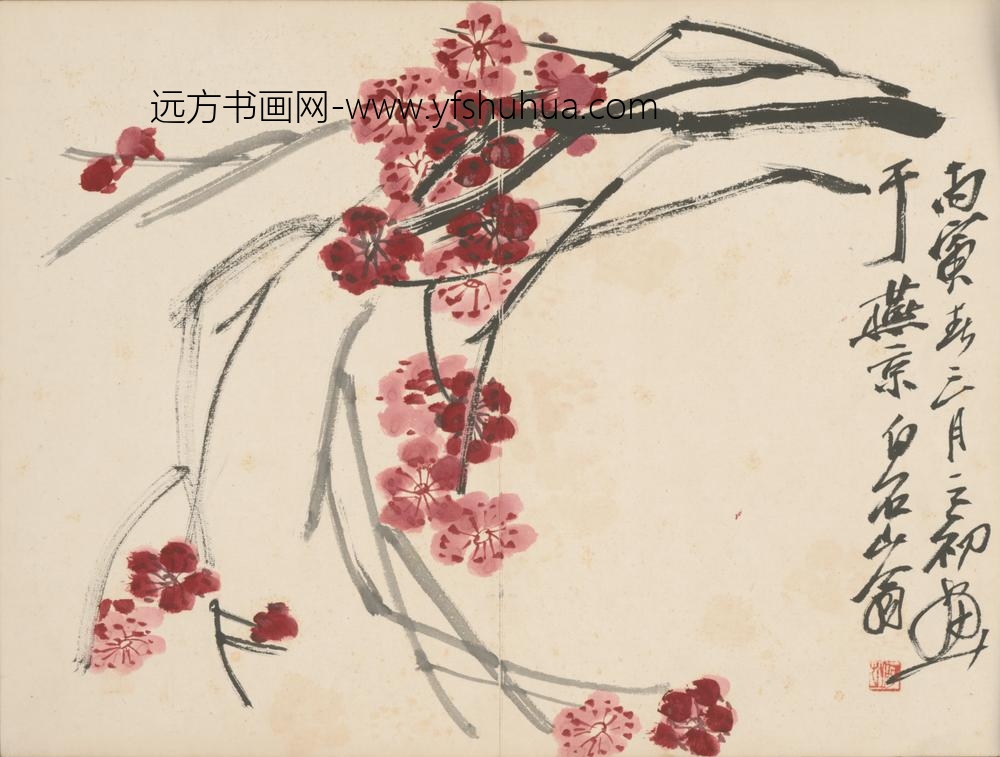 远方书画网-www.yfshuhua.com
丙寅春三月之初畫
于燕京白石山翁